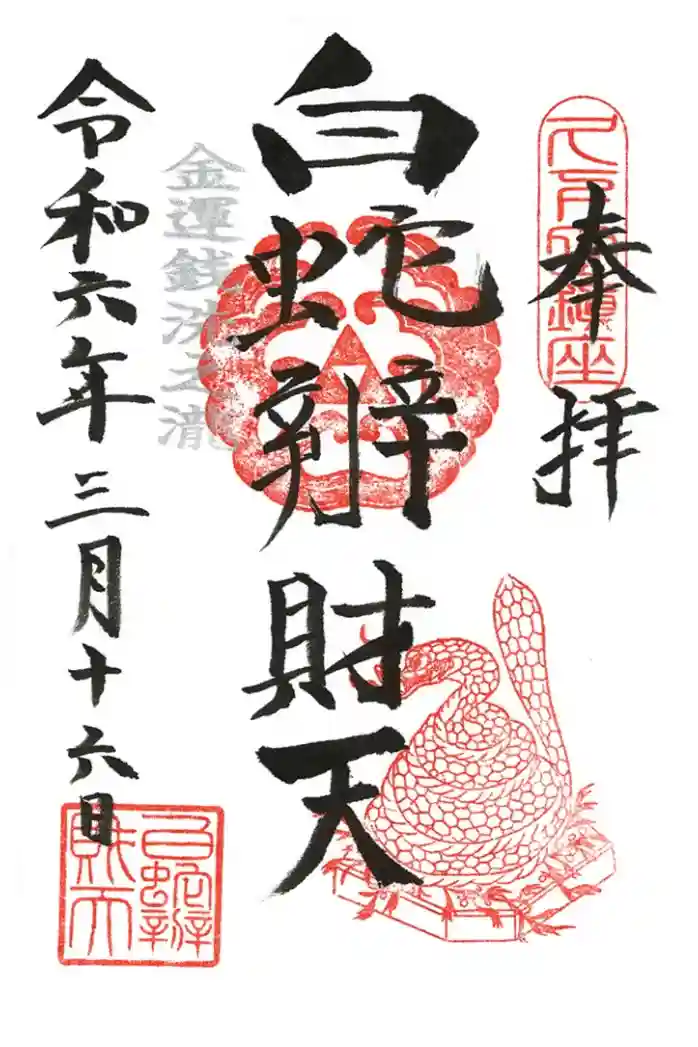 奉拝
鎮座
白蛇辨財天
金運銭洗之瀧
令和六年三月十六日
白蛇辨財天